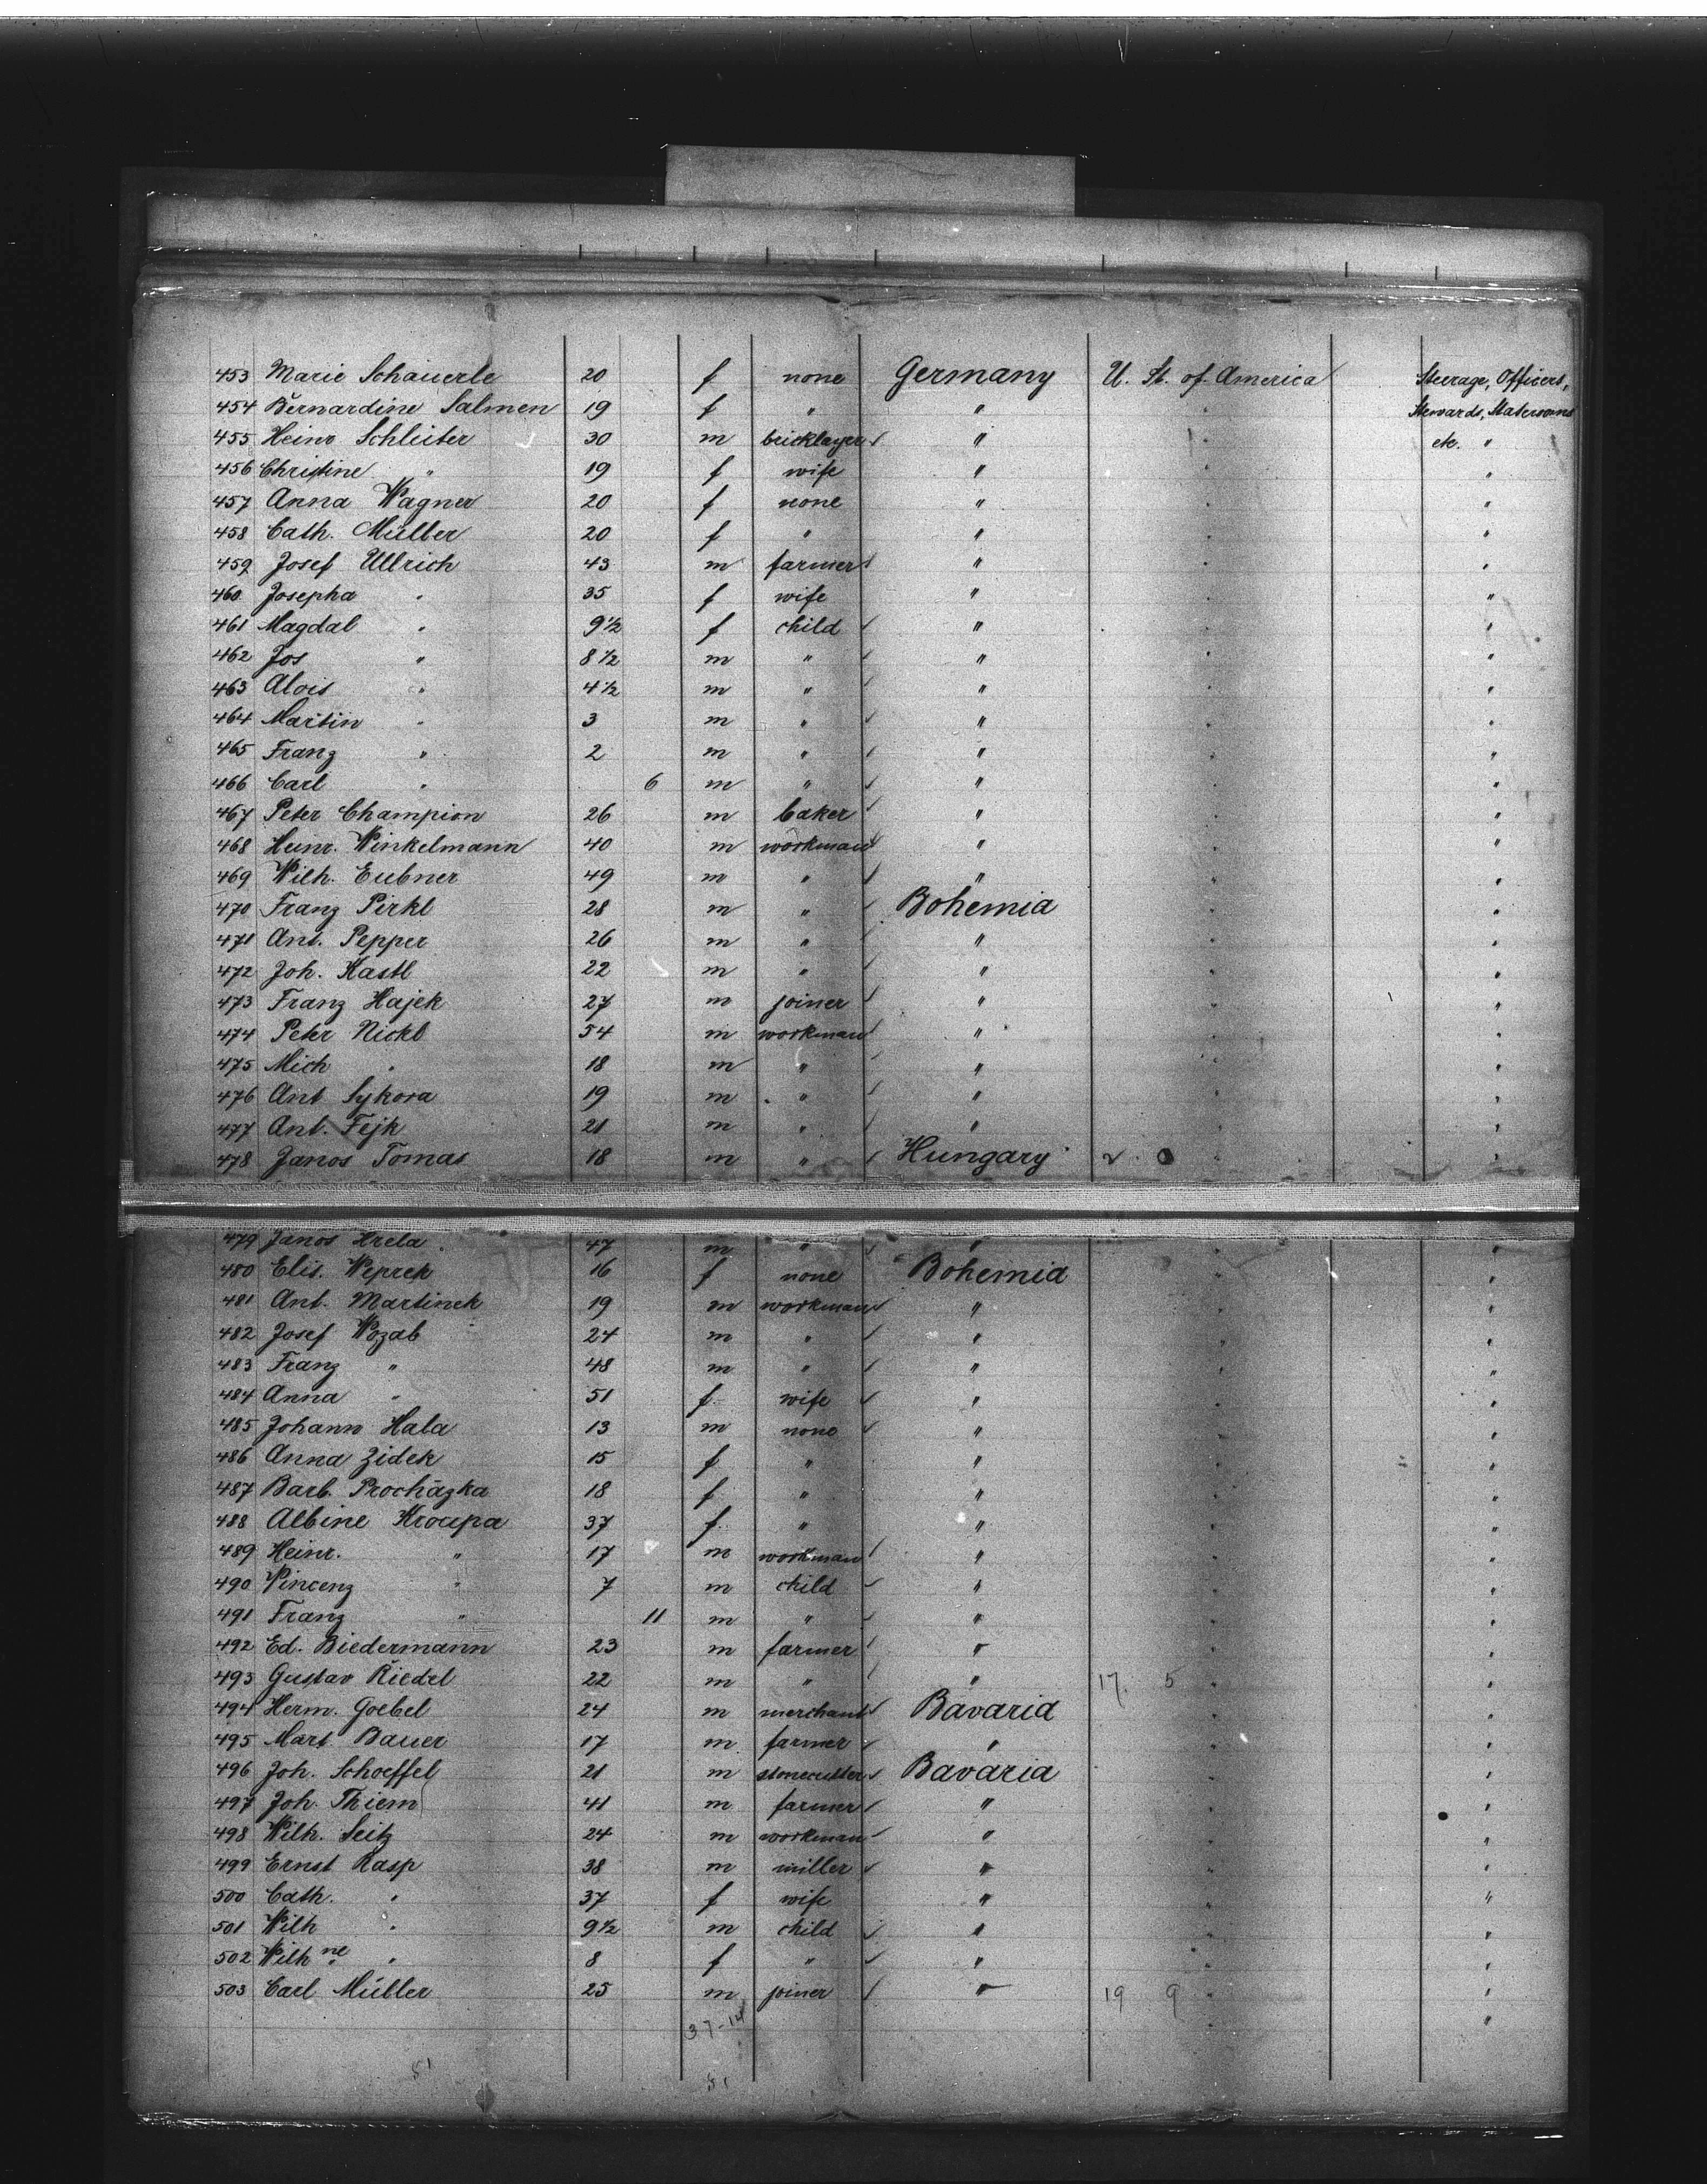 453 Marie Schauerle 20 f none Germany U. St. of America Steerage, Officers,
454 Bernardine Salmen 19 f " " " Stewards, Staterooms
455 Heinr Schleiter 30 m bricklayer " etc. "
456 Christine " 19 f wife " " "
457 Anna Wagner 20 f none " " "
458 Cath. Müller 20 f " " " "
459 Josef Ullrich 43 m farmer " " "
460 Josepha " 35 f wife " " "
461 Magdal " 9 1/2 f child " " "
462 Jos " 8 1/2 m " " " "
463 Alois " 4 1/2 m " " " "
464 Martin " 3 m " " " "
465 Franz " 2 m " " " "
466 Carl " 6 m " " " "
467 Peter Champion 26 m baker " " "
468 Heinr. Winkelmann 40 m workman " " "
469 Wilh. Eubner 49 m " " " "
470 Franz Pirkl 28 m " Bohemia " "
471 Ant. Pepper 26 m " " " "
472 Joh. Kastl 22 m " " " "
473 Franz Hajek 27 m joiner " " "
474 Peter Nickl 54 m workman " " "
475 Mich " 18 m " " " "
476 Ant Sykora 19 m " " " "
477 Ant. Fejk 21 m " " " "
478 Janos Tomas 18 m " Hungary " "
479 Janos Hrela 47 m " " " "
480 Elis. Weprek 16 f none Bohemia " "
481 Ant. Martinek 19 m workman " " "
482 Josef Wozab 24 m " " " "
483 Franz " 48 m " " " "
484 Anna " 51 f. wife " " "
485 Johann Hala 13 m none " " "
486 Anna Zidek 15 f " " " "
487 Barb. Procházka 18 f " " " "
488 Albine Kroupa 37 f. " " " "
489 Heinr. " 17 m workman " " "
490 Vincenz " 7 m child " " "
491 Franz " 11 m " " " "
492 Ed. Biedermann 23 m farmer " " "
493 Gustav Riedel 22 m " " 17. 5 " "
494 Herm. Goebel 24 m merchant Bavaria " "
495 Mart Bauer 17 m farmer " " "
496 Joh. Schoeffel 21 m stonecutter Bavaria " "
497 Joh. Thiem 41 m farmer " " "
498 Wilh. Seitz 24 m workman " " "
499 Ernst Rasp 38 m miller " " "
500 Cath. " 37 f wife " " "
501 Wilh " 9 1/2 m child " " "
502 Wilhne " 8 f " " " "
503 Carl Müller 25 m joiner " 19 9 " "
37-14 "
51 51